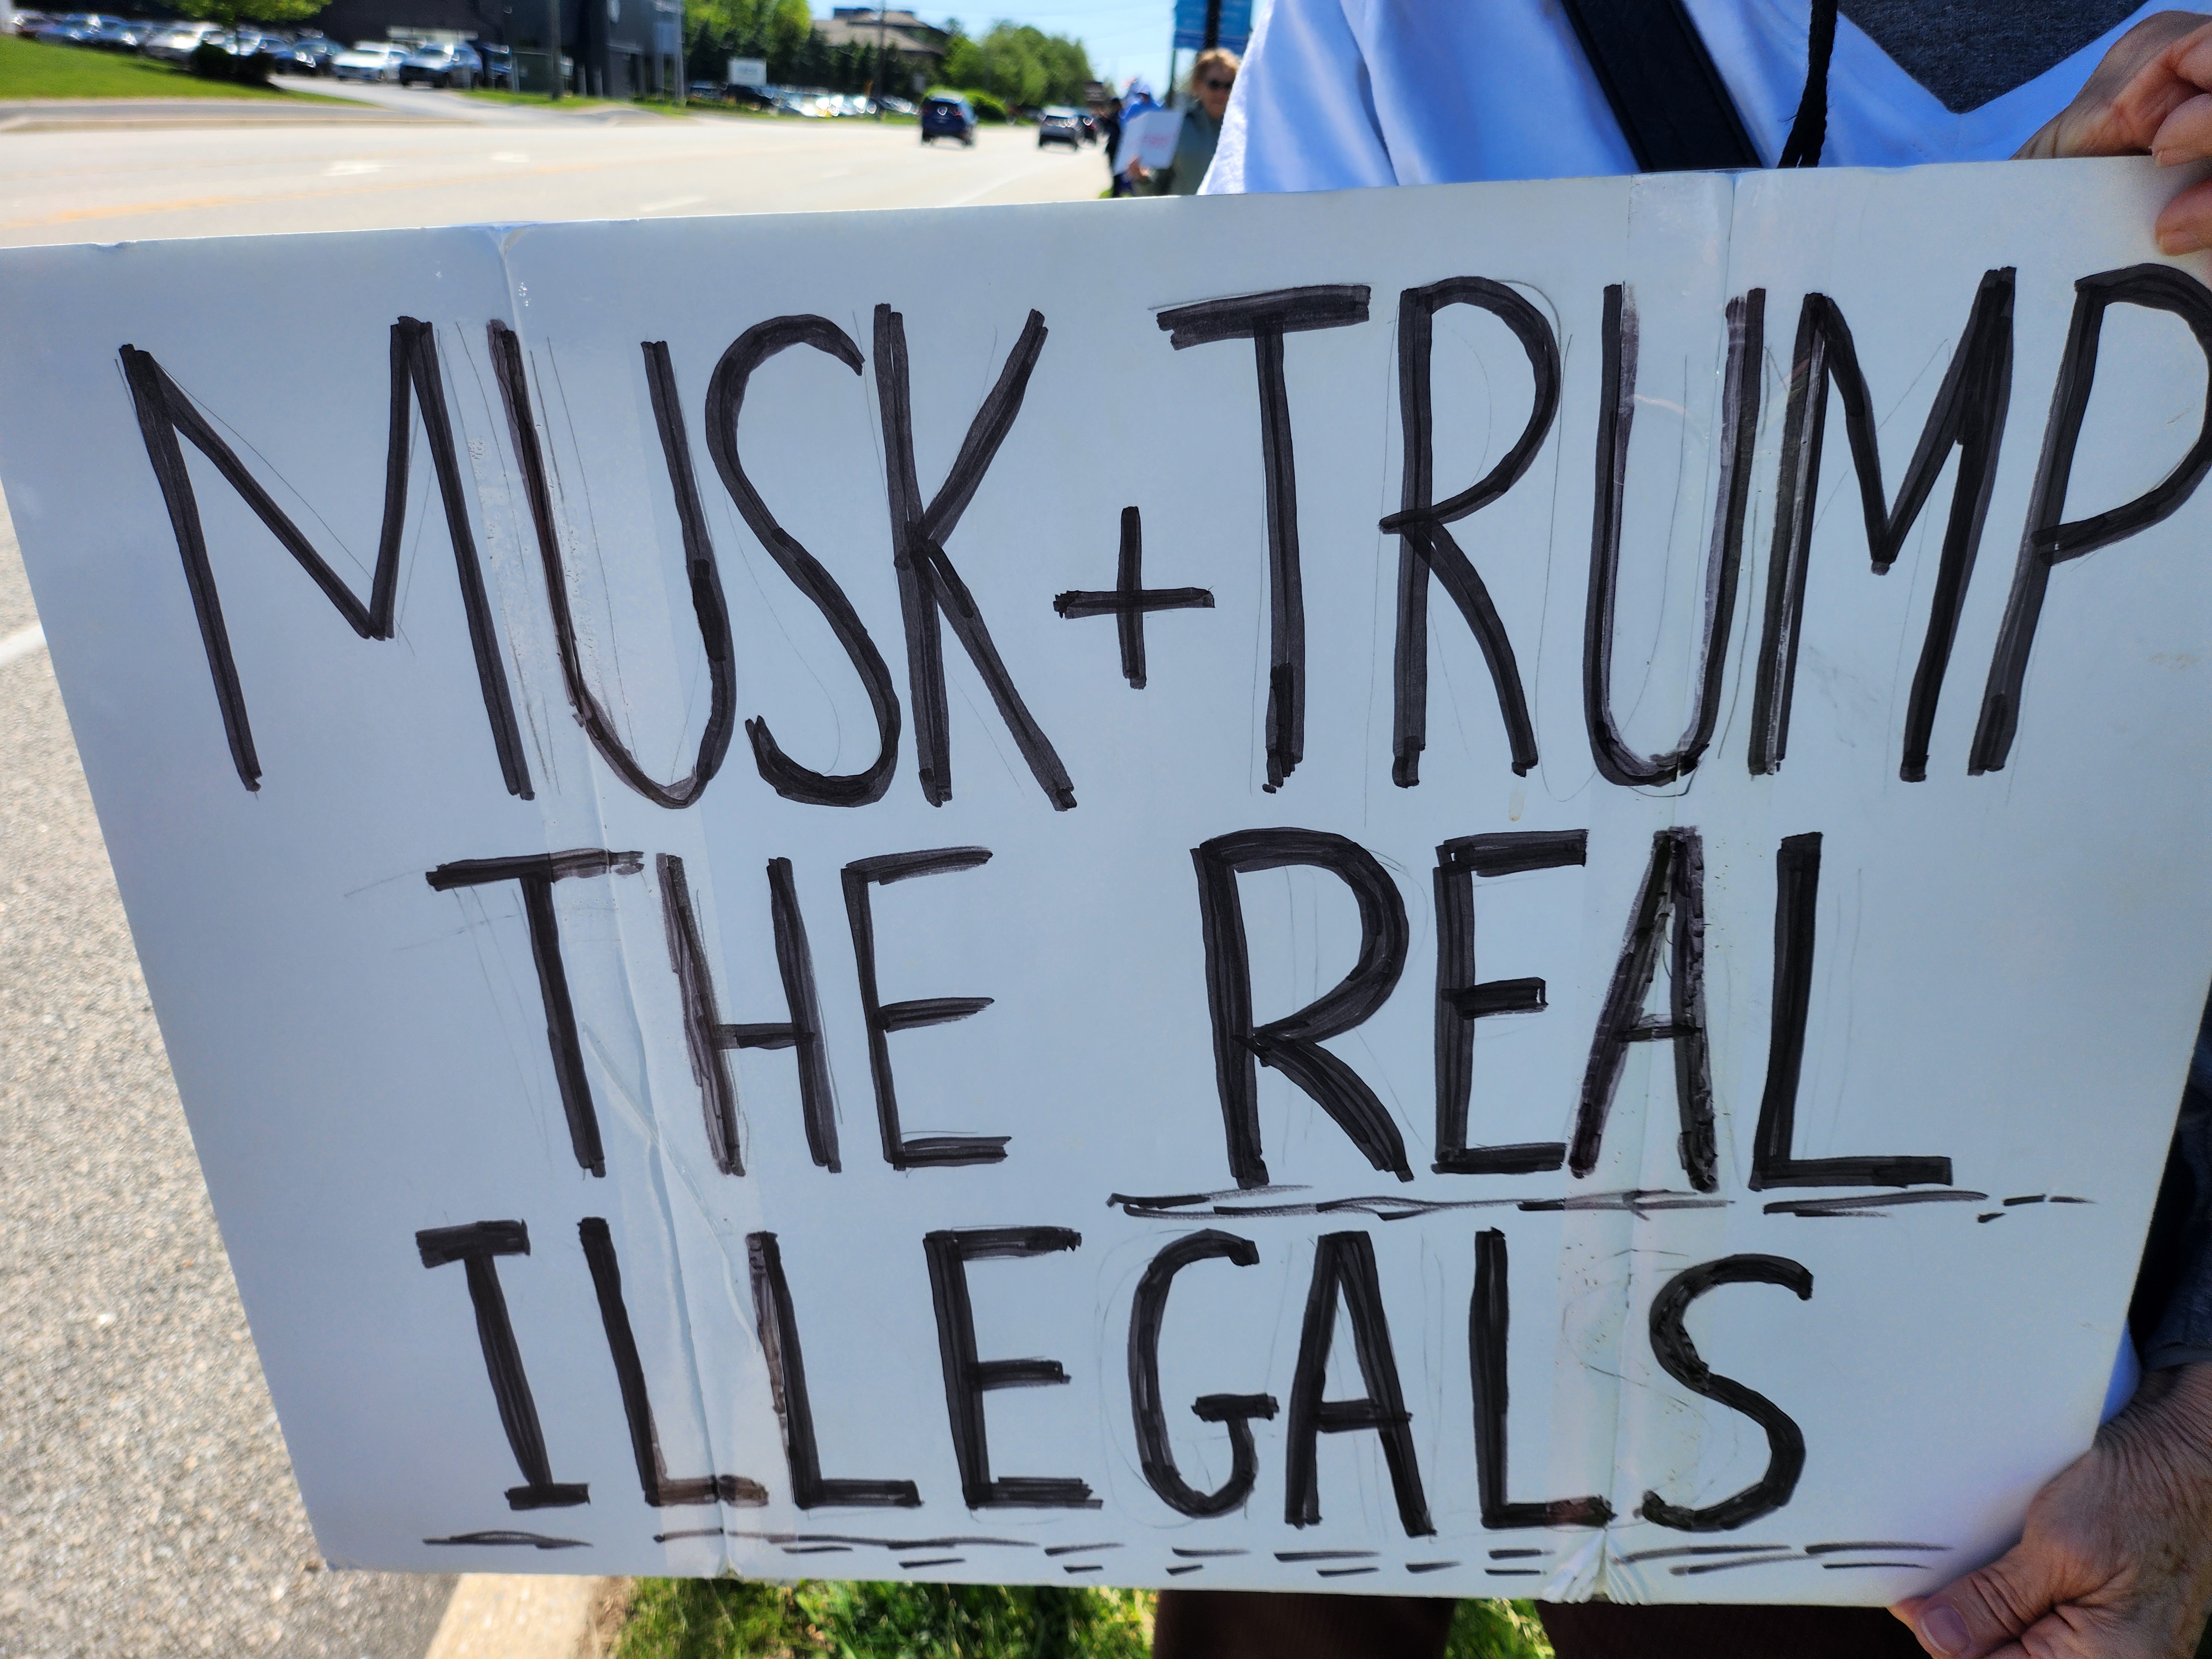 MUSK + TRUMP
THE REAL
ILLEGALS